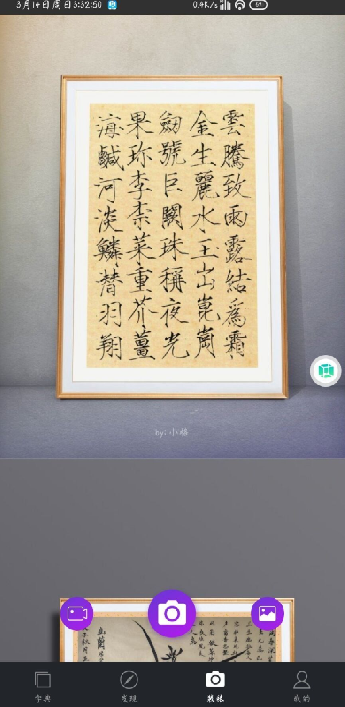 3月14日周日3:32:50
0.4K/s
雲騰致雨露結為霜
金生麗水玉出崑崗
劍號巨闕珠稱夜光
果珍李柰菜重芥薑
海鹹河淡鱗潛羽翔
by:小楊
字典
发现
裁裱
我的